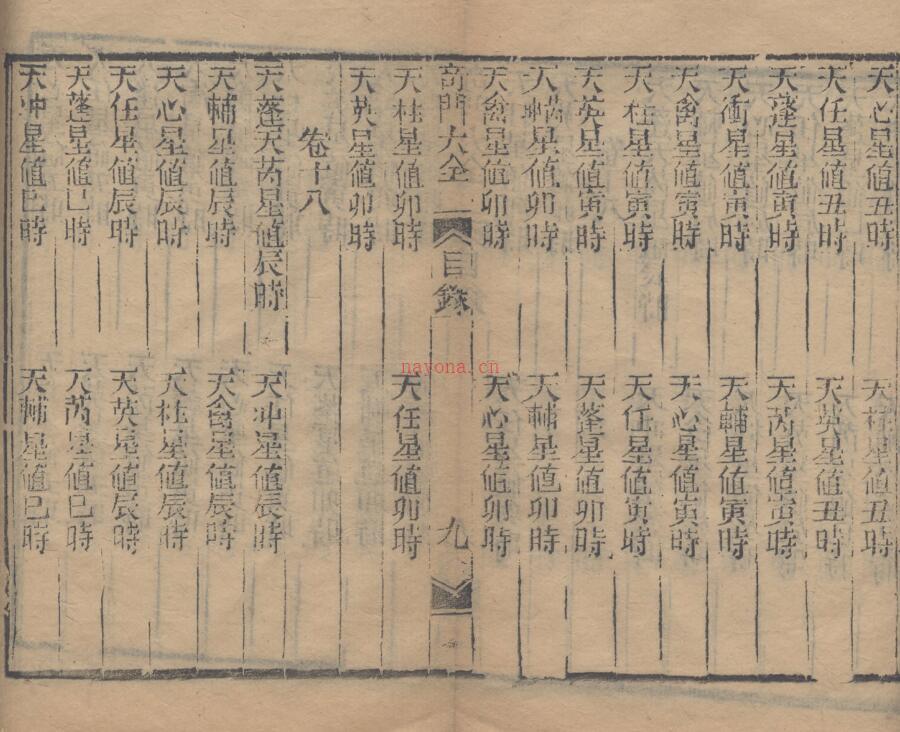 天心星値丑時
天柱星値丑時
天任星値丑時
天英星値丑時
天蓬星値寅時
天芮星値寅時
天衝星値寅時
天輔星値寅時
天禽星値寅時
天心星値寅時
天柱星値寅時
天任星値寅時
天英星値寅時
天蓬星値卯時
天星値卯時
天輔星値卯時
天禽星値卯時
天心星値卯時
奇門大全
目錄
九
天柱星値卯時
天任星値卯時
天英星値卯時
卷十八
天蓬天芮星値辰時
天冲星値辰時
天輔星値辰時
天禽星値辰時
天心星値辰時
天柱星値辰時
天任星値辰時
天英星値辰時
天蓬星値巳時
天芮星値巳時
天冲星値巳時
天輔星値巳時
nayona.cn